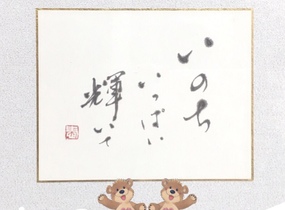 いのち
いっぱい
輝いて